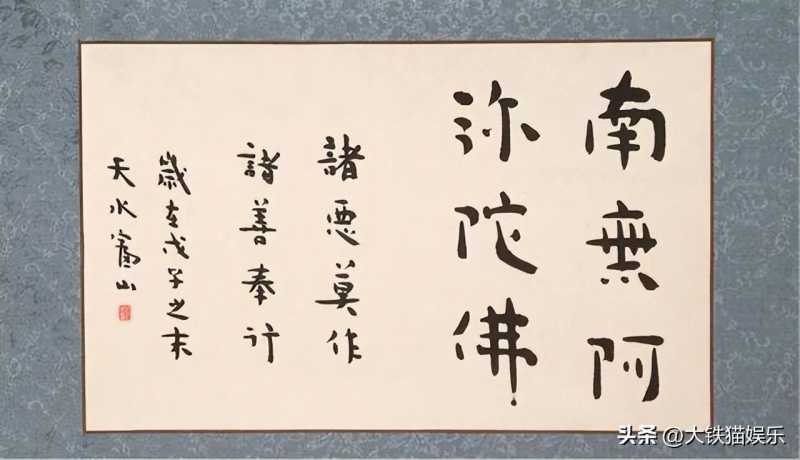 南無阿
弥陀佛
諸悪莫作
諸善奉行
歲在戊子之末
天水 山
头条 @大铁猫娱乐